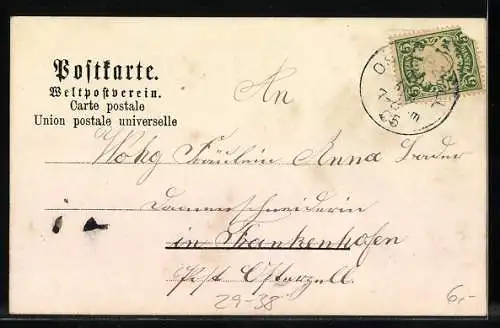 Postkarte.
Weltpostverein.
Carte postale
Union postale universelle
An
Fräulein Anna Bader
Damenschneiderin
in Frankenhofen
Post Osterzell.
29-38
6,-
5